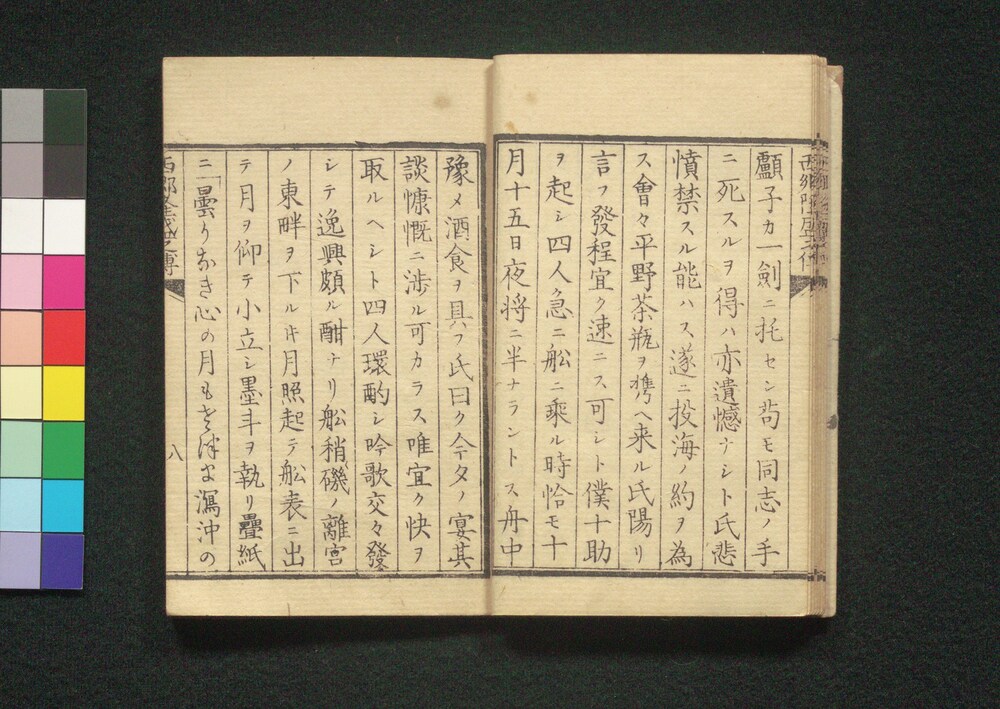 顱子カ一劍ニ托セン苟モ同志ノ手
ニ死スルヲ得ハ亦遺憾ナシト氏悲
憤禁スル能ハス遂ニ投海ノ約ヲ為
ス會々平野茶瓶ヲ携ヘ来ル氏陽リ
言フ發程宜ク速ニス可シト僕十助
ヲ起シ四人急ニ舩ニ乘ル時恰モ十
月十五日夜将ニ半ナラントス舟中
豫メ酒食ヲ具フ氏曰ク今夕ノ宴其
談慷慨ニ渉ル可カラス唯宜ク快ヲ
取ルヘシト四人環酌シ吟歌交々發
シテ逸興頗ル酣ナリ舩稍磯ノ離宮
ノ東畔ヲ下ル𪜈月照起テ舩表ニ出
テ月ヲ仰テ小立シ墨斗ヲ執リ疊紙
ニ「曇りなき心の月もさつま瀉沖の
八